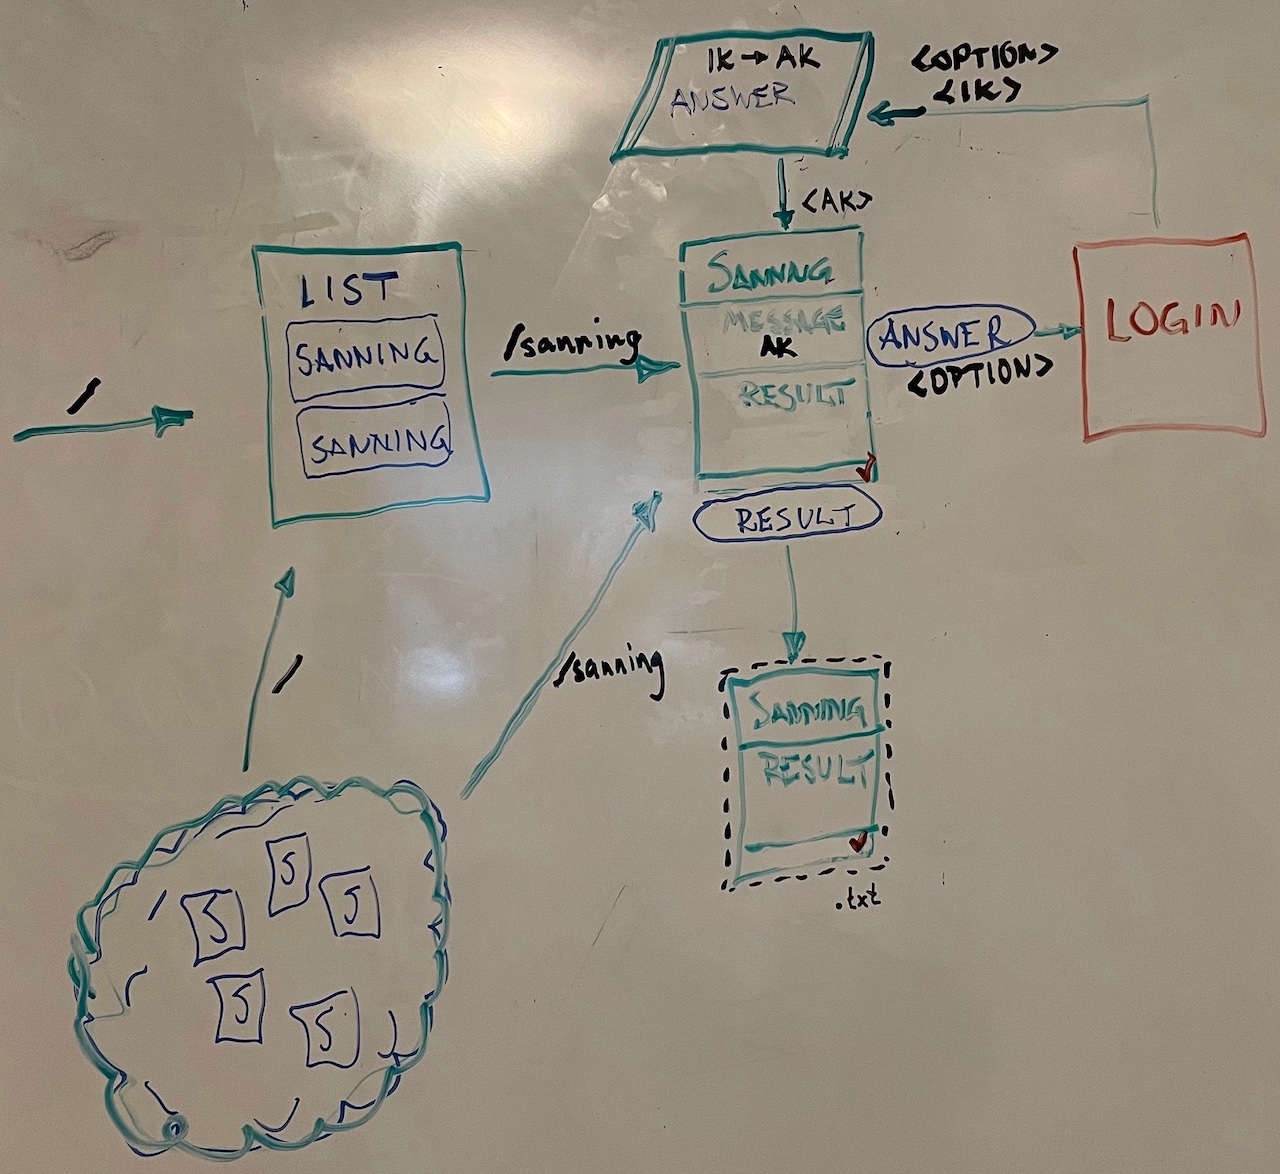 IK → AK
ANSWER
<OPTION>
<IK>
<AK>
LIST
SANNING
SANNING
/
/sanning
SANNING
MESSAGE
AK
RESULT
ANSWER
<OPTION>
LOGIN
RESULT
/
/sanning
SANNING
RESULT
.txt
S
S
S
S
S